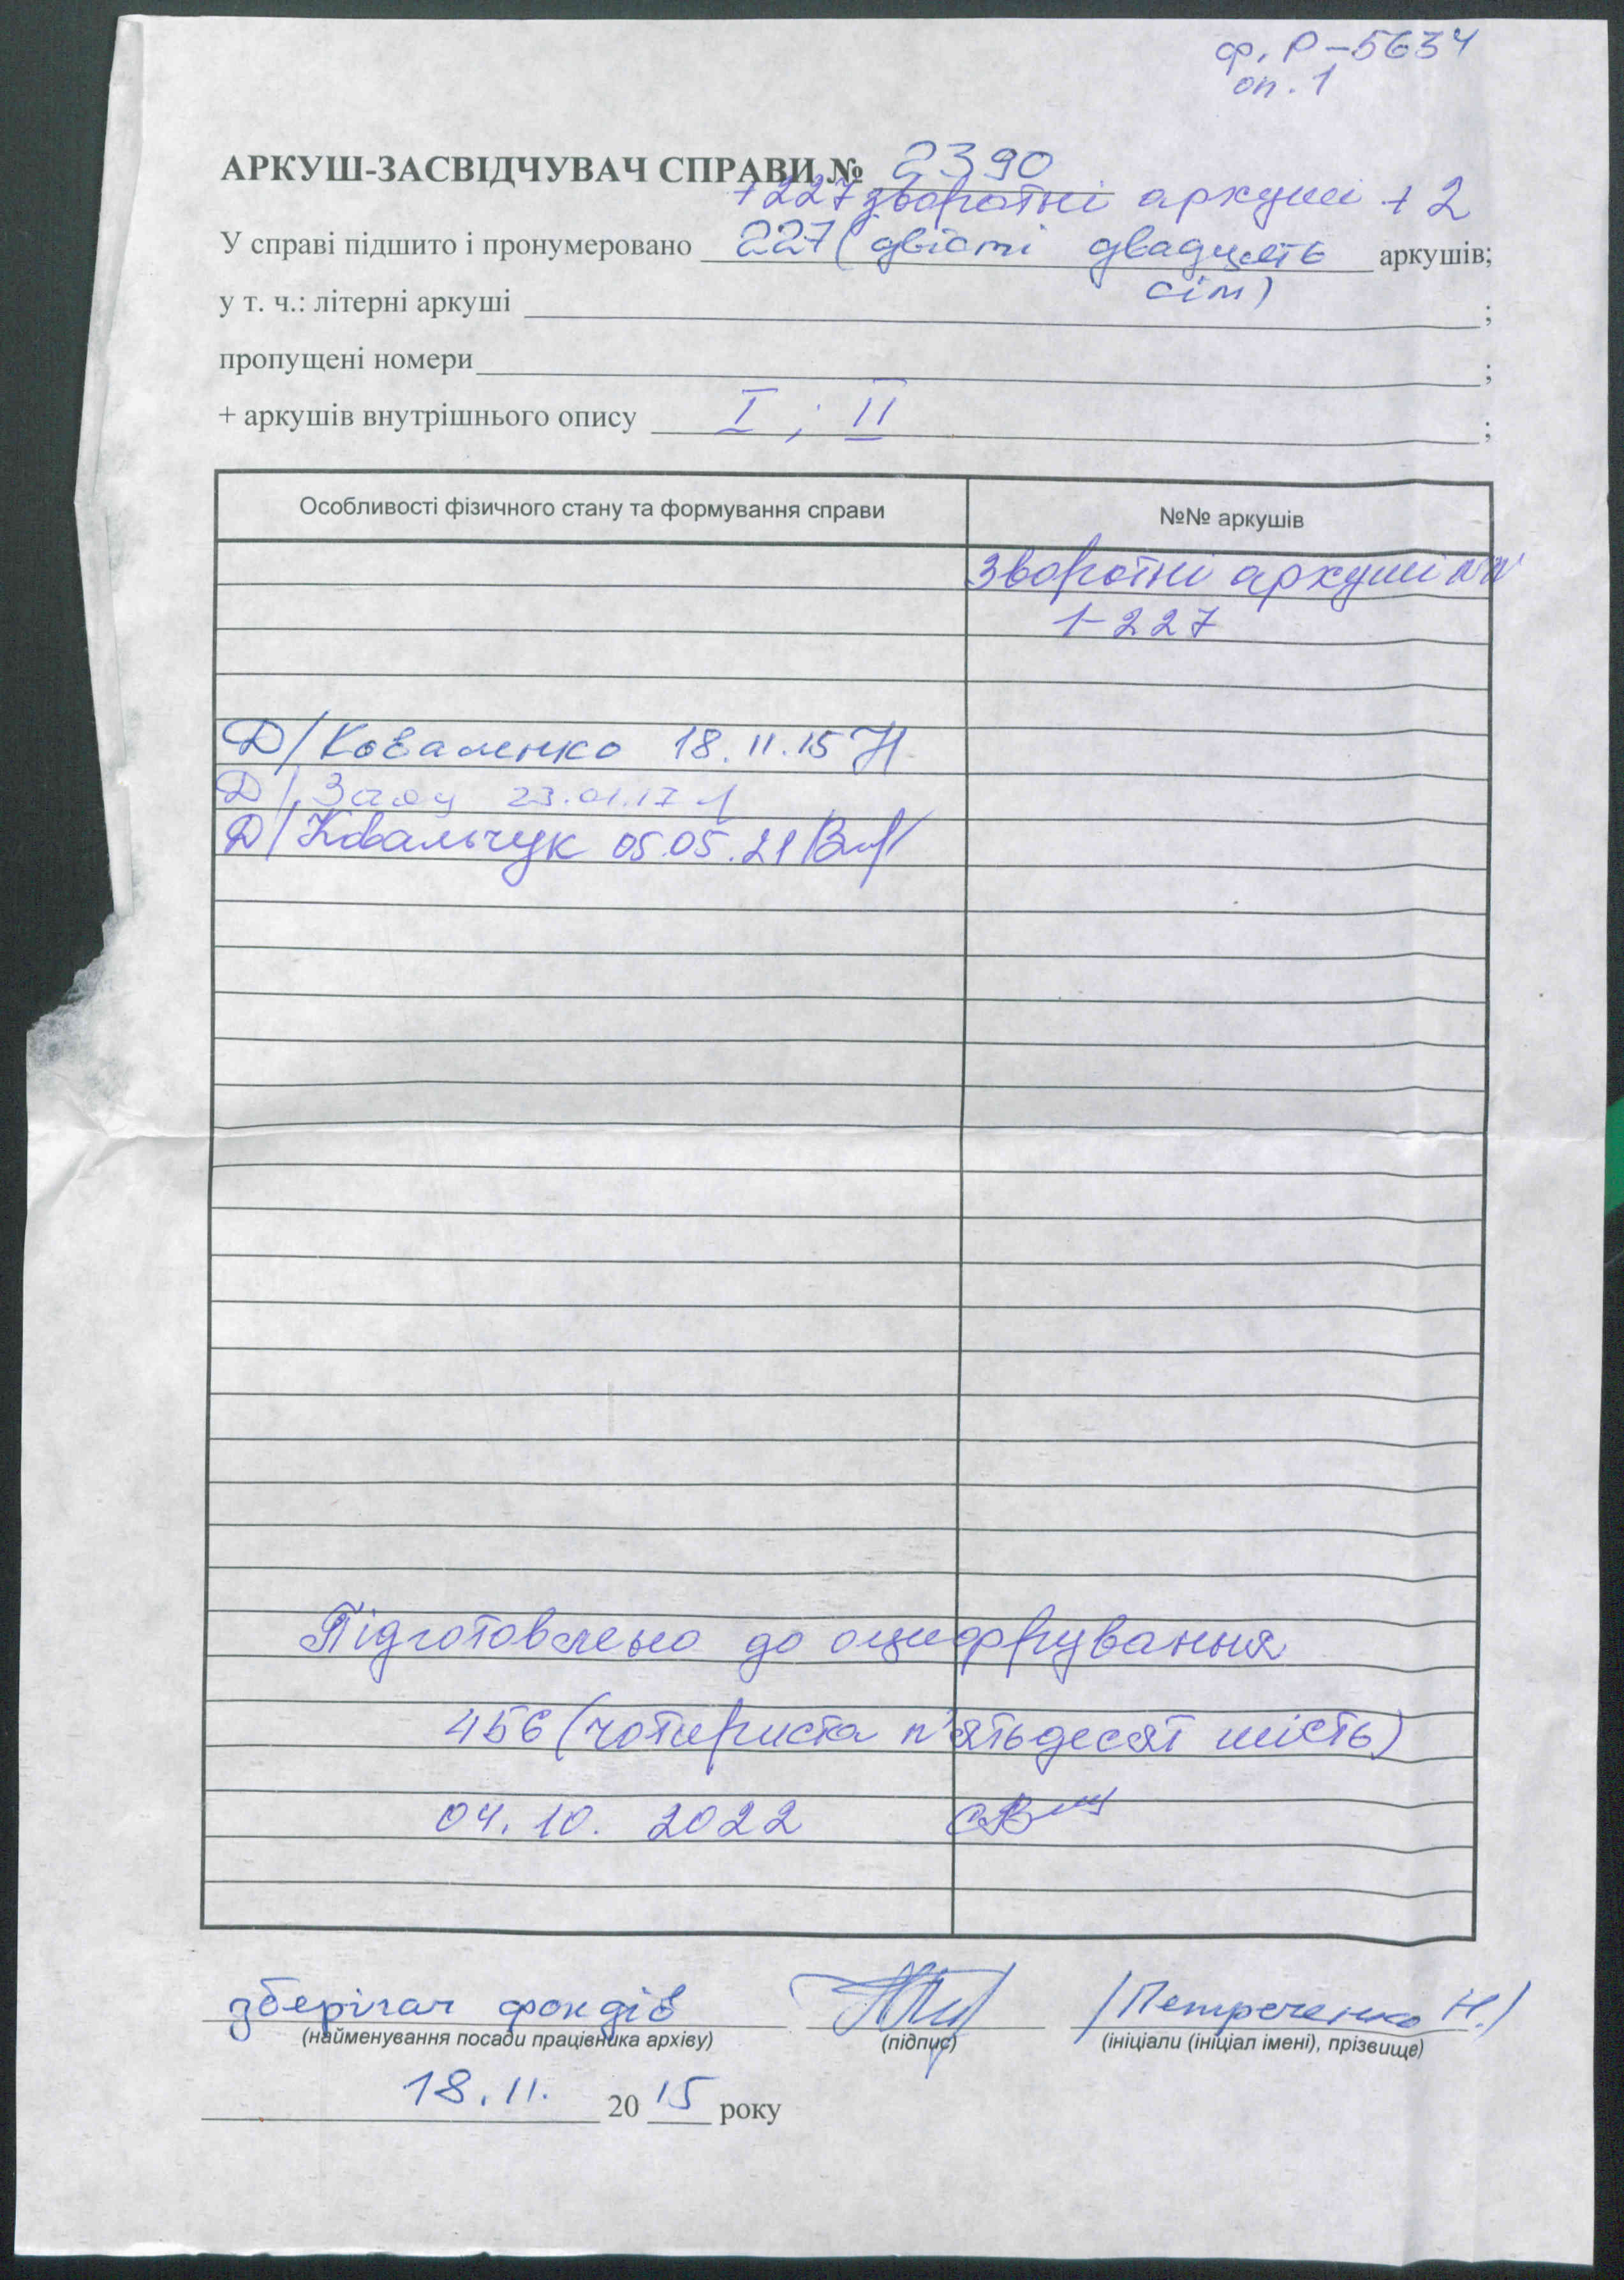 ф. Р-5634
оп. 1
АРКУШ-ЗАСВІДЧУВАЧ СПРАВИ № 2390
+ 227 зворотні аркуші + 2
У справі підшито і пронумеровано 227 (двісті двадцять аркушів;
сім)
у т. ч.: літерні аркуші ;
пропущені номери ;
+ аркушів внутрішнього опису I ; II ;
Особливості фізичного стану та формування справи №№ аркушів
Зворотні аркуші №№
1-227
Д/Коваленко 18.11.15
Д/ 23.01.17
Д/Ковальчук 05.05.21
Підготовлено до оцифрування
456 (чотириста п'ятьдесят шість)
04.10.2022
зберігач фондів /Петреченко Н./
(найменування посади працівника архіву) (підпис) (ініціали (ініціал імені), прізвище)
18.11. 20 15 року